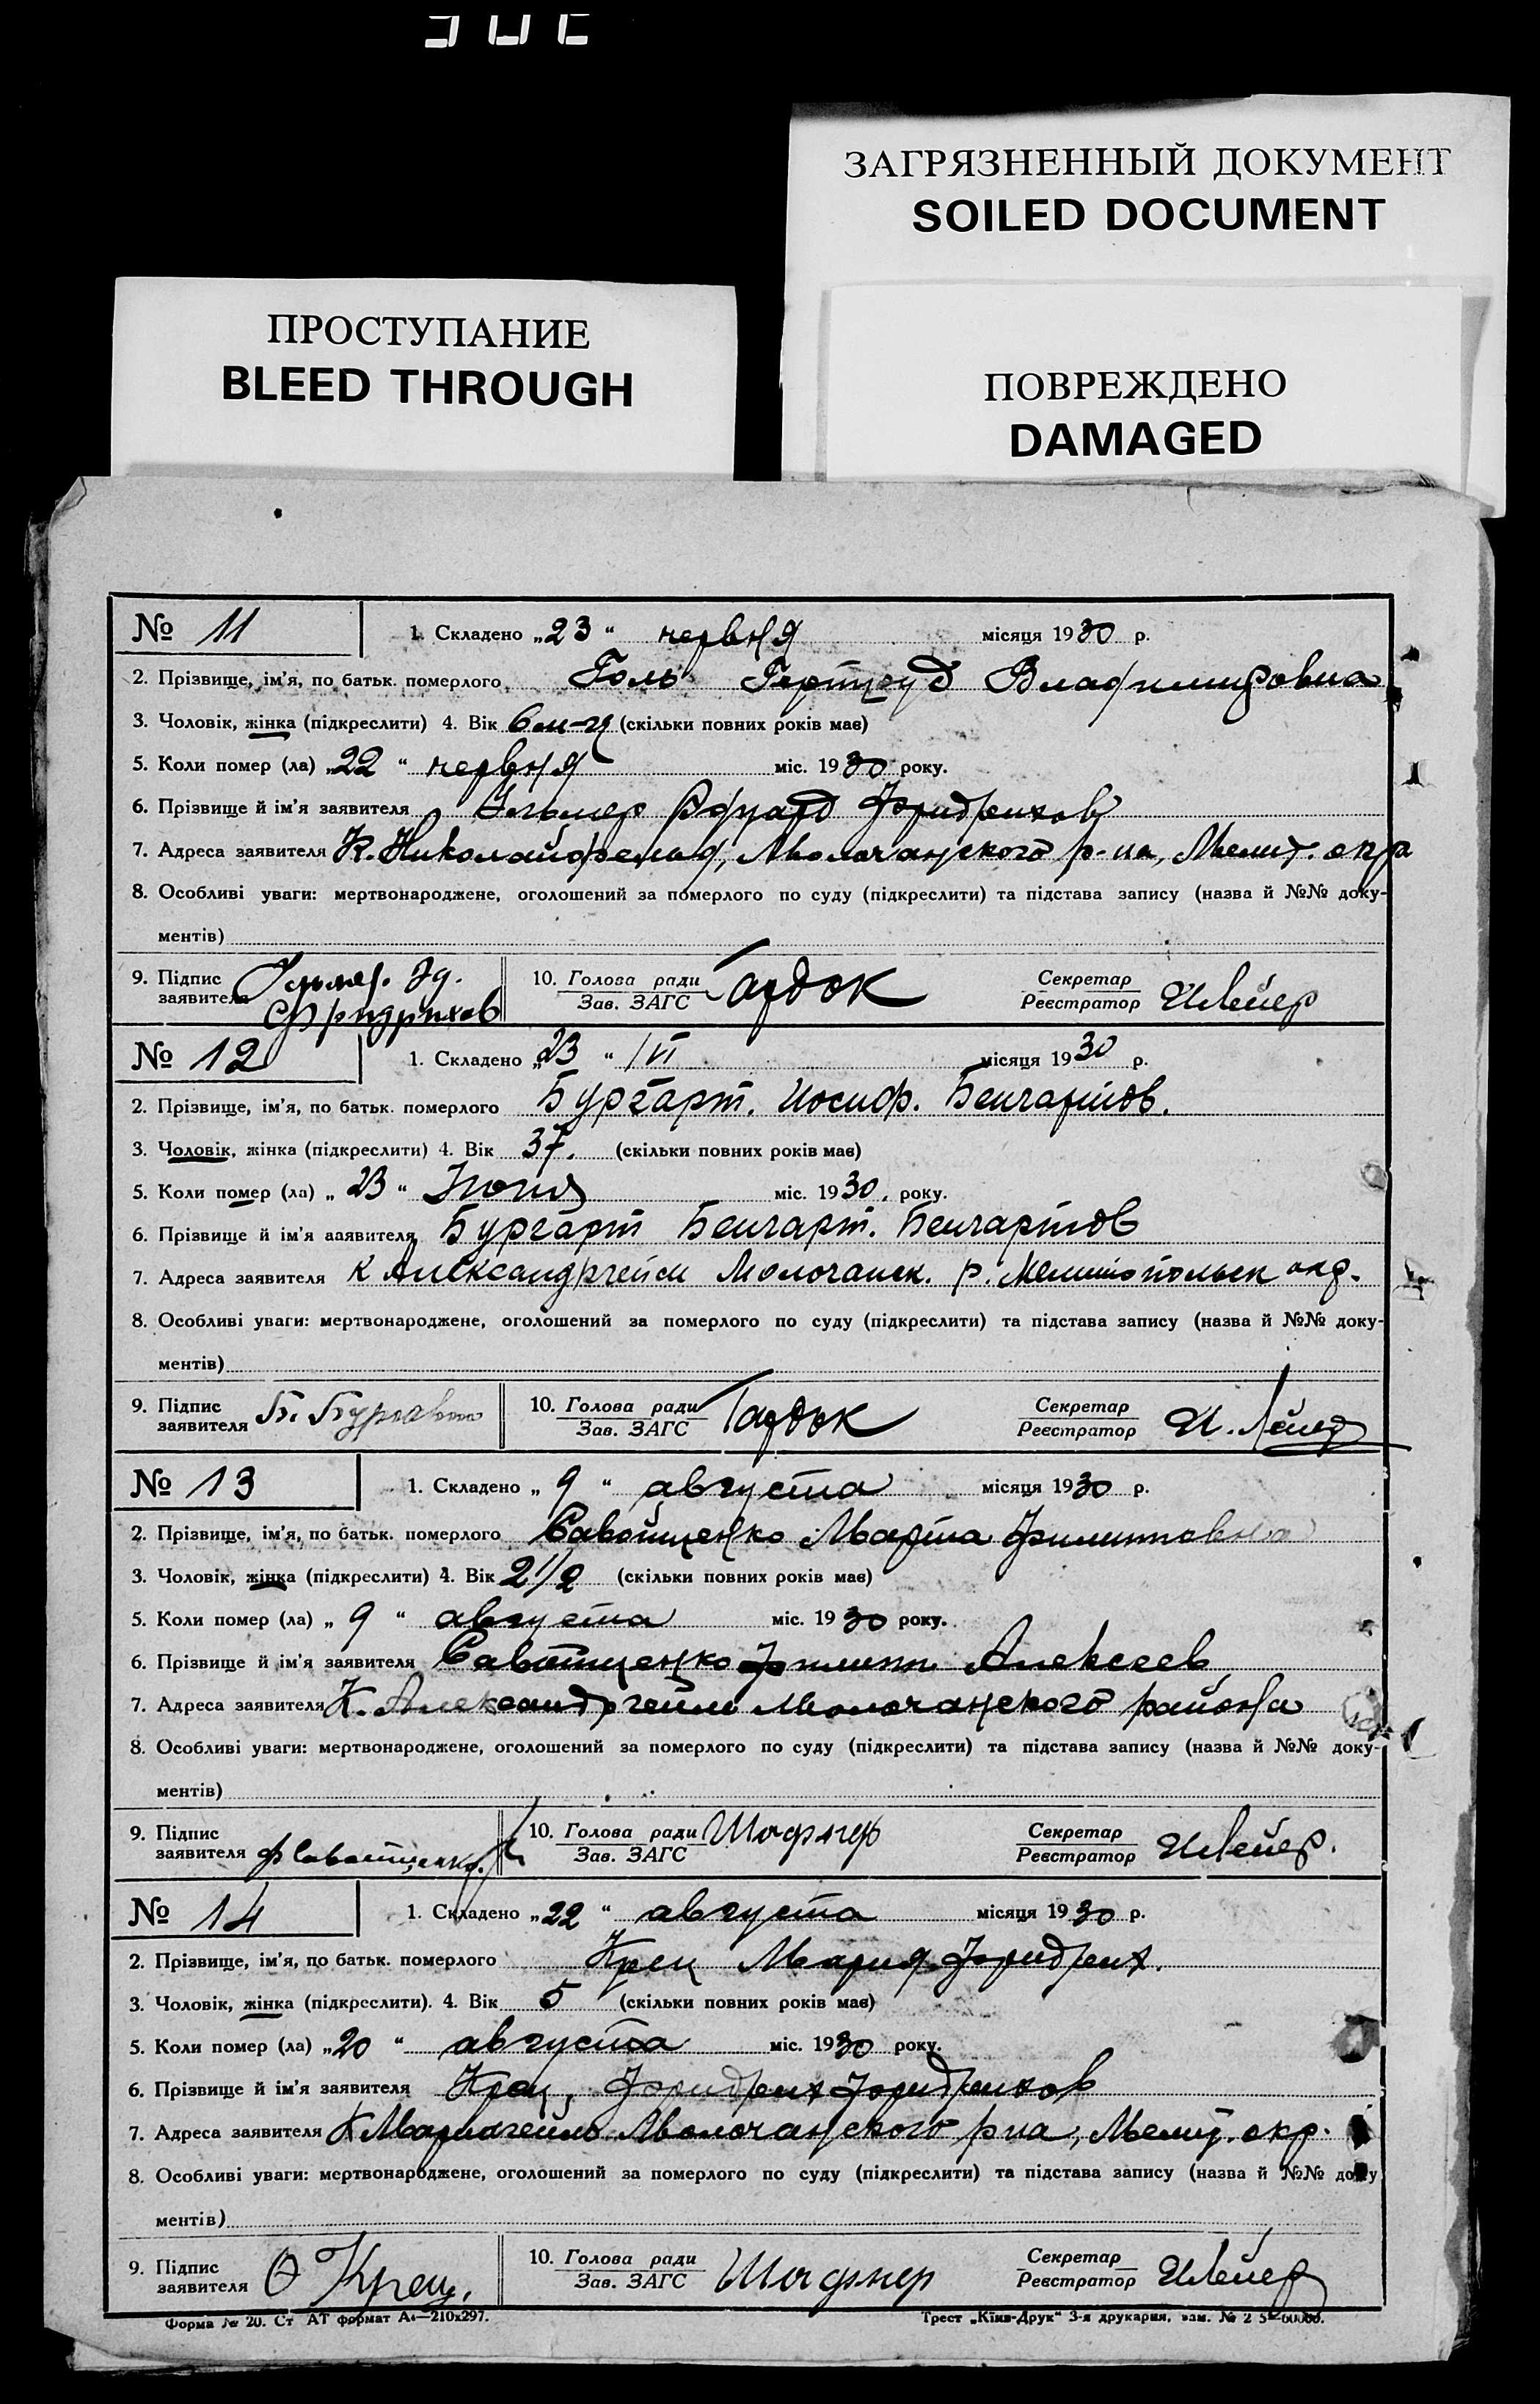 ЗАГРЯЗНЕННЫЙ ДОКУМЕНТ
SOILED DOCUMENT
ПРОСТУПАНИЕ
BLEED THROUGH
ПОВРЕЖДЕНО
DAMAGED
№ 11 1. Складено „23“ червня місяця 1930 р.
2. Прізвище, ім'я, по батьк. померлого Голь Гертруд Владимировна
3. Чоловік, жінка (підкреслити) 4. Вік 6 м-ця (скільки повних років має)
5. Коли помер (ла) „22“ червня міс. 1930 року.
6. Прізвище й ім'я заявителя Эдуард Фридрихов
7. Адреса заявителя К. Николайфельд, Молочанского р-на, Мелит. окр
8. Особливі уваги: мертвонароджене, оголошений за померлого по суду (підкреслити) та підстава запису (назва й №№ доку-
ментів)
9. Підпис заявителя Эд. Фридрихов 10. Голова ради Зав. ЗАГС Гардок Секретар Реєстратор И Лейер
№ 12 1. Складено „23“ /VI місяця 1930 р.
2. Прізвище, ім'я, по батьк. померлого Бургарт. Иосиф. Бенгартов.
3. Чоловік, жінка (підкреслити) 4. Вік 37. (скільки повних років має)
5. Коли помер (ла) „23“ Июня міс. 1930. року.
6. Прізвище й ім'я заявителя Бургарт Бенгарт. Бенгартов
7. Адреса заявителя К Александргейм Молочанск. р. Мелитопольск окр.
8. Особливі уваги: мертвонароджене, оголошений за померлого по суду (підкреслити) та підстава запису (назва й №№ доку-
ментів)
9. Підпис заявителя Б. Бургарт 10. Голова ради Зав. ЗАГС Гардок Секретар Реєстратор И. Лейер
№ 13 1. Складено „9“ августа місяця 1930 р.
2. Прізвище, ім'я, по батьк. померлого Савотценко Марта Филипповна
3. Чоловік, жінка (підкреслити) 4. Вік 2 1/2 (скільки повних років має)
5. Коли помер (ла) „9“ августа міс. 1930 року.
6. Прізвище й ім'я заявителя Савотценко Филипп Алексеев
7. Адреса заявителя К. Александргейм Молочанского района
8. Особливі уваги: мертвонароджене, оголошений за померлого по суду (підкреслити) та підстава запису (назва й №№ доку-
ментів)
9. Підпис заявителя Ф Савотценко. 10. Голова ради Зав. ЗАГС Шафнер Секретар Реєстратор И Лейер.
№ 14 1. Складено „22“ августа місяця 1930 р.
2. Прізвище, ім'я, по батьк. померлого Крец Мария Фридрих.
3. Чоловік, жінка (підкреслити). 4. Вік 5 (скільки повних років має)
5. Коли помер (ла) „20“ августа міс. 1930 року.
6. Прізвище й ім'я заявителя Крец, Фридрих Фридрихов
7. Адреса заявителя К Мариагейм Молочанского р на, Мелит. окр.
8. Особливі уваги: мертвонароджене, оголошений за померлого по суду (підкреслити) та підстава запису (назва й №№ доку
ментів)
9. Підпис заявителя Ф Крец. 10. Голова ради Зав. ЗАГС Шафнер Секретар Реєстратор И Лейер
Форма № 20. Ст АТ формат А4—210х297. Трест „Київ-Друк“ 3-я друкарня, зам. №